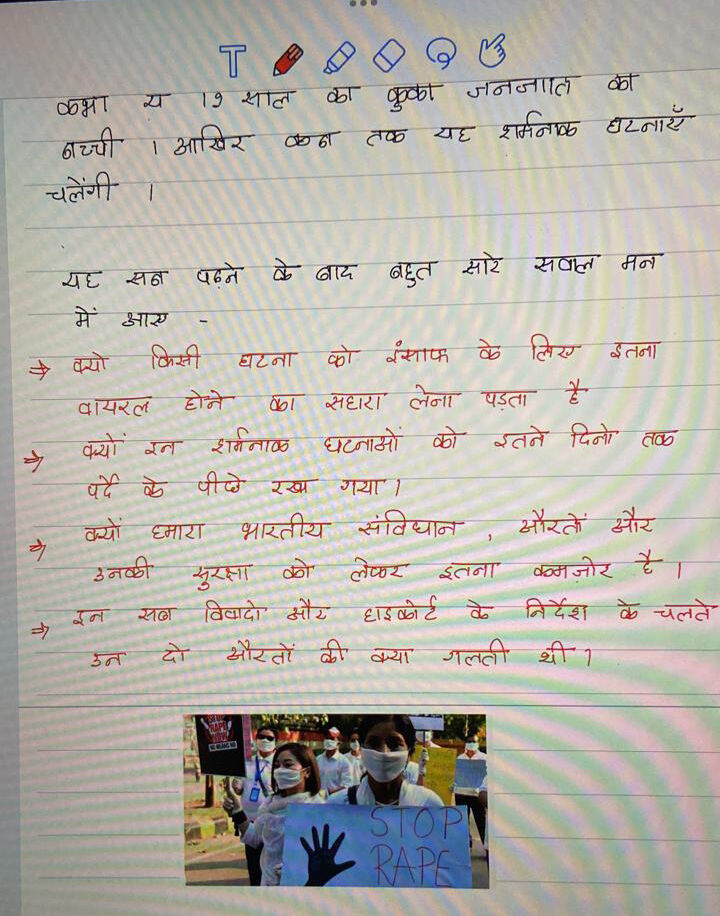 कभी य 19 साल की कुकी जनजाति की
बच्ची । आखिर कब तक यह शर्मनाक घटनाएँ
चलेंगी ।
यह सब पढ़ने के बाद बहुत सारे सवाल मन
में आए -
⇒ क्यो किसी घटना को इंसाफ के लिए इतना
वायरल होने का सहारा लेना पड़ता है
⇒ क्यों इन शर्मनाक घटनाओं को इतने दिनो तक
पर्दे के पीछे रखा गया ।
⇒ क्यों हमारा भारतीय संविधान , औरतों और
उनकी सुरक्षा को लेकर इतना कमजोर है ।
⇒ इन सब विवादो और हाइकोर्ट के निर्देश के चलते
उन दो औरतों की क्या गलती थी ।
STOP
RAPE